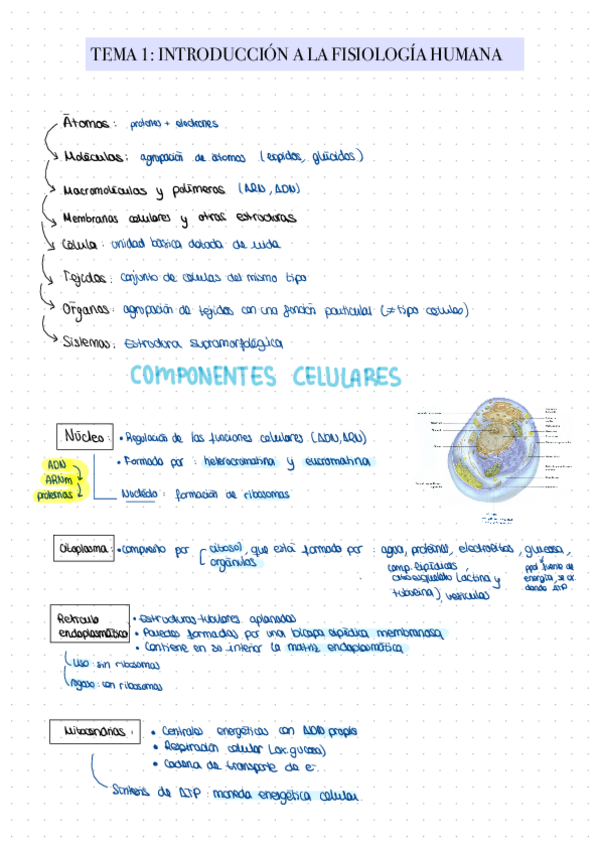 TEMA 1: INTRODUCCIÓN A LA FISIOLOGÍA HUMANA
Átomos: protones + electrones
Moléculas: agrupación de átomos (lípidos, glúcidos)
Macromoléculas y polímeros (ARN, ADN)
Membranas celulares y otras estructuras
Célula: unidad básica dotada de vida
Tejidos: conjunto de células del mismo tipo
Órganos: agrupación de tejidos con una función particular (≠ tipo células)
Sistemas: Estructura supramorfológica
COMPONENTES CELULARES
Núcleo: • Regulación de las funciones celulares (ADN, ARN)
• Formado por: heterocromatina y eucromatina
ADN
ARNm
proteínas
Nucléolo: formación de ribosomas
Citoplasma: • compuesto por citosol, que está formado por: agua, proteínas, electrolitos, glucosa,
orgánulos
comp. lipídicos, citoesqueleto (actina y tubulina), vesículas
ppal fuente de energía, se ox. dando ATP
Retículo endoplasmático
• Estructuras tubulares aplanadas
• Paredes formadas por una bicapa lipídica membranosa
• Contiene en su interior la matriz endoplasmática
Liso: sin ribosomas
Rugoso: con ribosomas
Mitocondrias: • Centrales energéticas con ADN propio
• Respiración celular (ox. glucosa)
• Cadena de transporte de e-
Síntesis de ATP: moneda energética celular